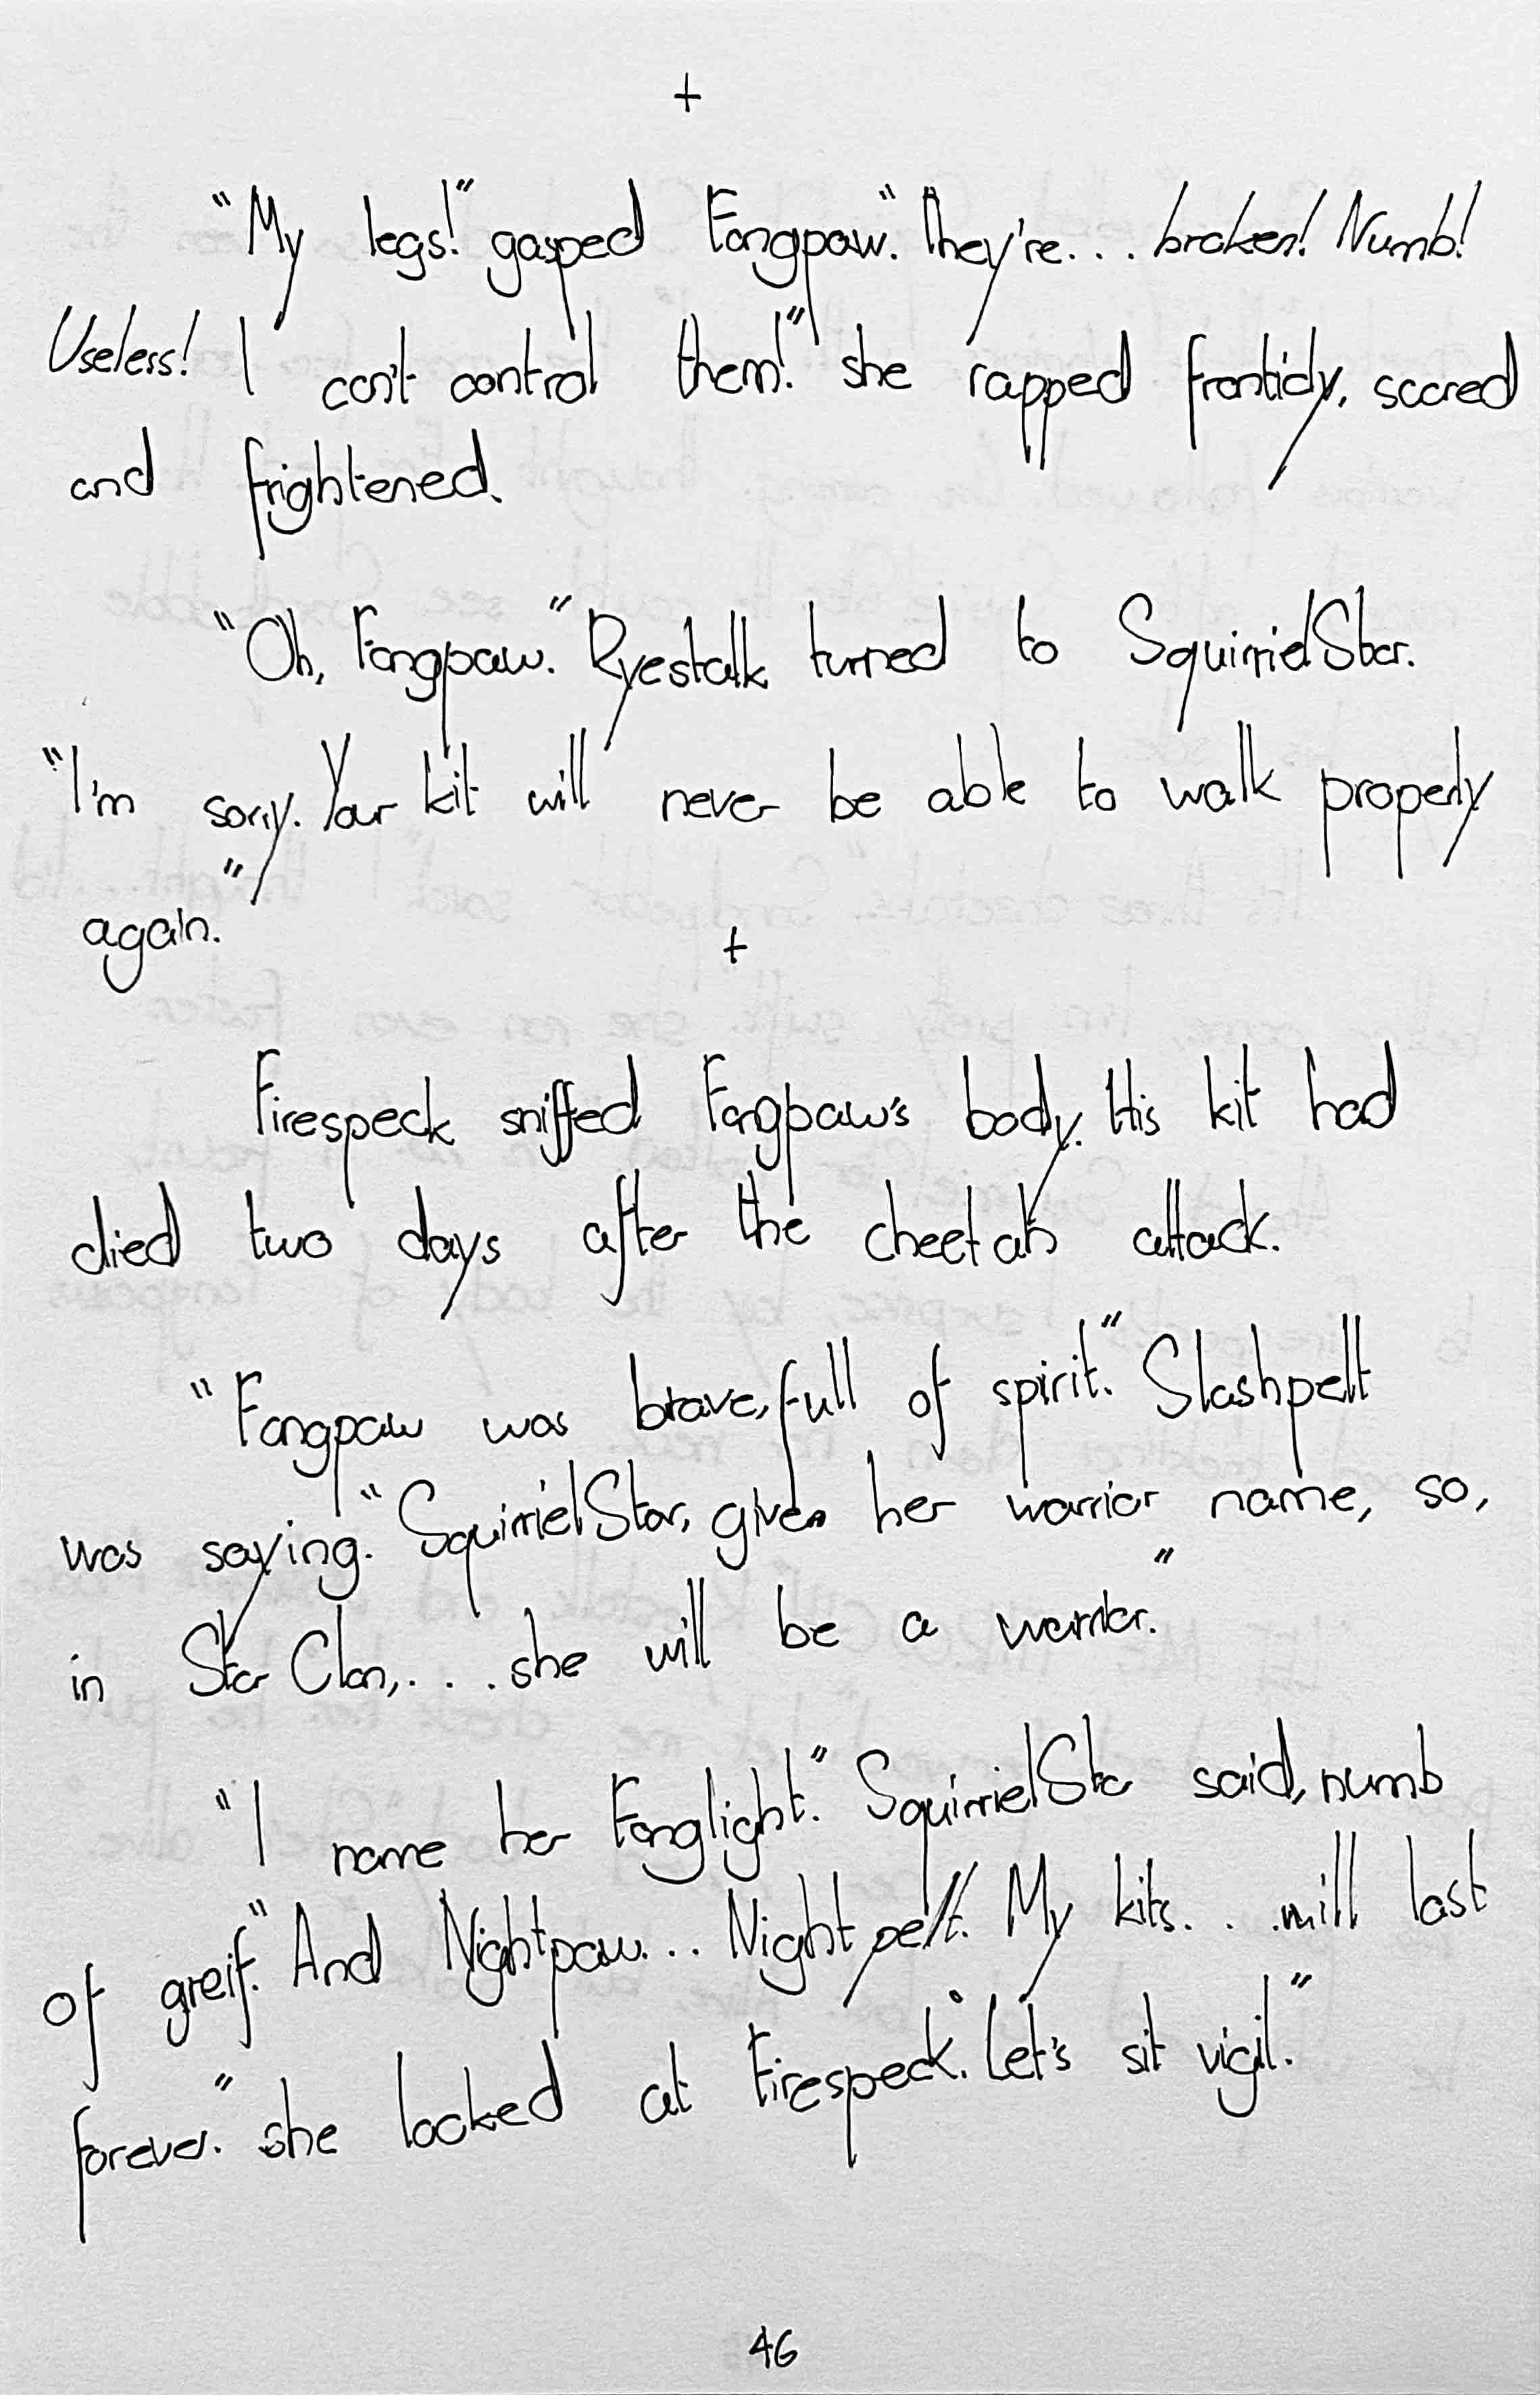 +
"My legs!" gasped Fangpaw. "They're... broken! Numb!
Useless! I can't control them!" she rapped frantidy, scared
and frightened.
"Oh, Fangpaw." Ryestalk turned to SquirrielStar.
"I'm sorry. Your kit will never be able to walk properly
again."
+
Firespeck sniffed Fangpaw's body. His kit had
died two days after the cheetah attack.
"Fangpaw was brave, full of spirit." Slashpelt
was saying. "SquirrielStar, given her warrior name, so,
in StarClan,... she will be a warrior."
"I name her Fanglight." SquirrielStar said, numb
of greif. "And Nightpaw... Nightpelt. My kits... will last
forever." she looked at Firespeck. "Let's sit vigil."
46